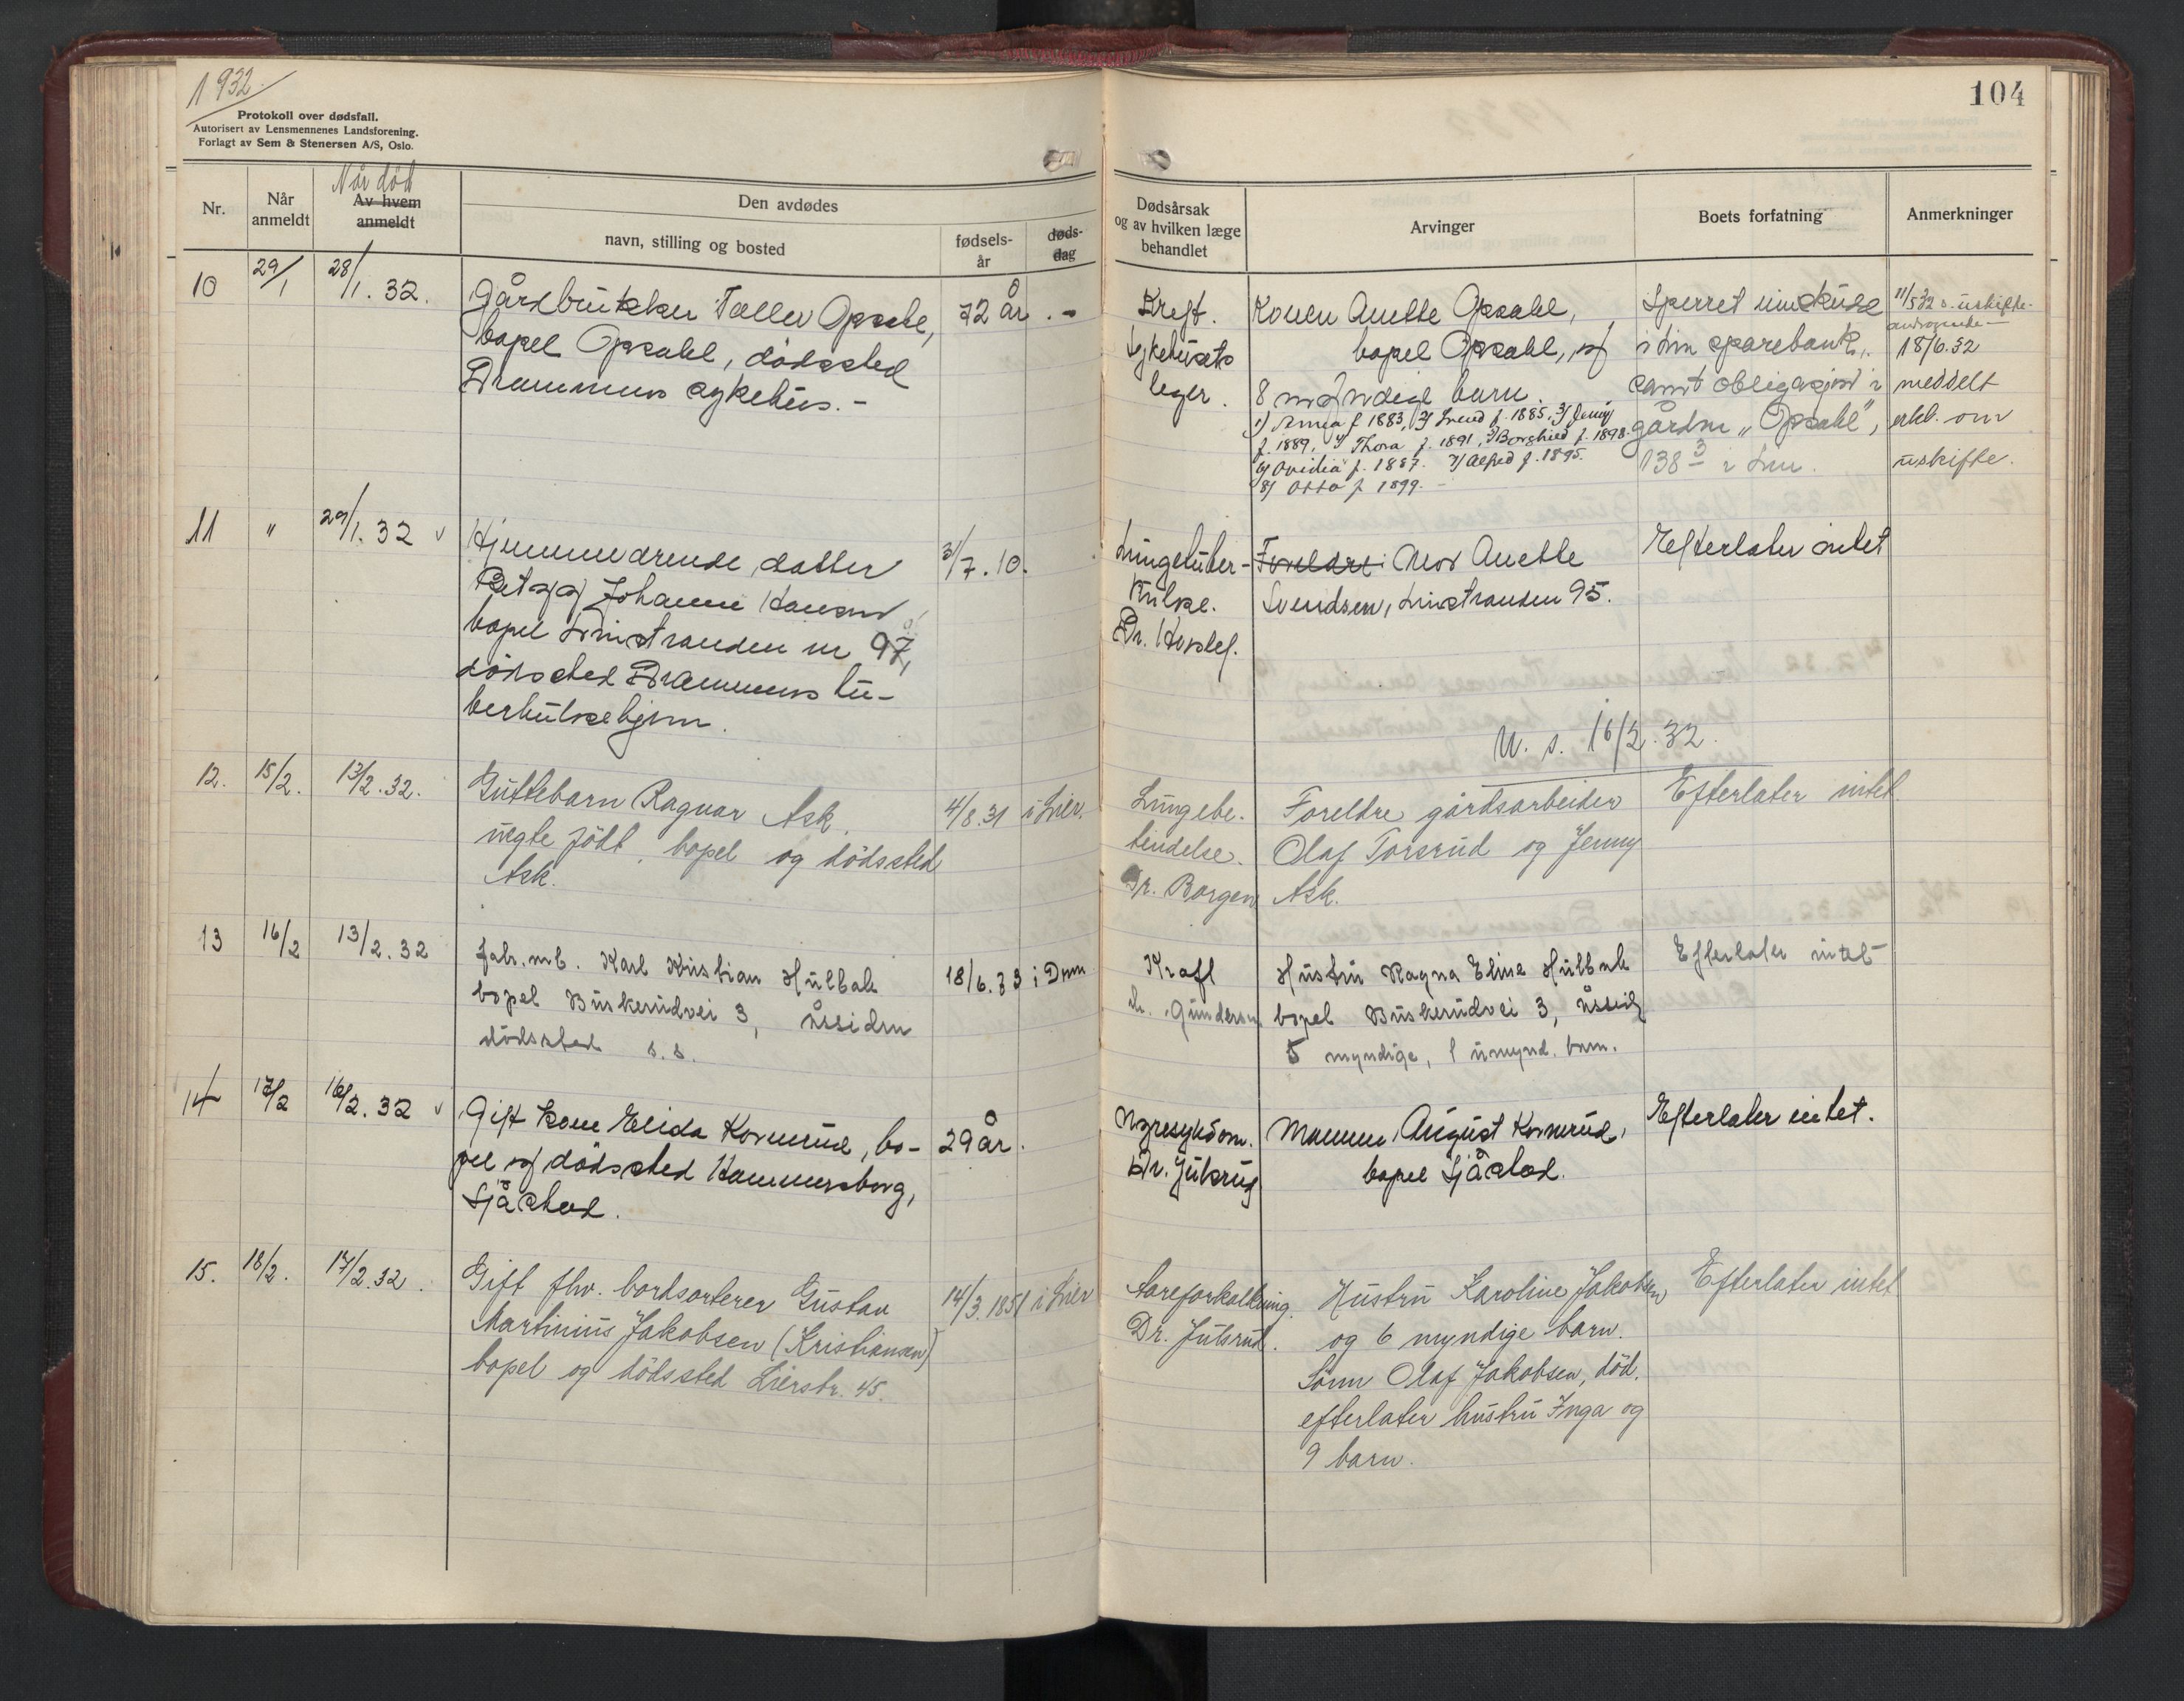 1932.
Protokoll over dødsfall.
Autorisert av Lensmennenes Landsforening.
Forlagt av Sem & Stenersen A/S, Oslo.
104
Nr.
Når
anmeldt
Når död
Av hvem
anmeldt
Den avdødes
navn, stilling og bosted
fødsels-
år
døds-
dag
Dødsårsak
og av hvilken læge
behandlet
Arvinger
Boets forfatning
Anmerkninger
10
29/1
28/1. 32.
Gårdbruker Tollev Opsahl,
bopel Opsahl, dödssted
Drammens sykehus. -
72 år. -
Kreft.
Sykehusets
leger.
Konen Anette Opsahl,
bopel Opsahl, og
8 myndige barn.
1) Anna f 1883, 2) Svend f. 1885, 3) Jenny
f. 1889, 4) Thora f. 1891, 5) Borghild f. 1898.
6) Ovidia f. 1887. 7) Alfred f. 1895.
8) Otto f 1899. -
Sperret innskudd
i Lier sparebank,
samt obligasjon i
gården „Opsahl",
138 3 i Lier.
11/5 32 s. uskifte-
18/6.32
meddelt
erkl. om
uskifte.
11
"
29/1. 32 v
Hjemmeværende datter
Johanne Hansen
bopel Lierstranden nr 97,
dödssted Drammens tu-
berkulosehjem.
31/7. 10.
Lungetuber-
kulose.
Dr.
Foreldre: Mor Anette
Svendsen, Lierstranden 95.
Efterlater intet
U. s. 16/2. 32.
12.
15/2.
13/2. 32.
Guttebarn Ragnar Ask.
uegte födt, bopel og dödssted
Ask.
4/8. 31
i Lier.
Lungebe-
tendelse.
Dr. Borgen
Foreldre gårdsarbeider
Olaf Torsrud og Jenny
Ask.
Efterlater intet
13
16/2
13/2. 32
fabr.arb. Karl Kristian Hultbak
bopel Buskerudvei 3, Åssiden
dödssted s. s.
18/6. 83
i Drm
Kraft
dr. Gundersen
Hustru Ragna Eline Hultbak
bopel Buskerudvei 3, Åssid
5 myndige, 1 umynd. barn.
Efterlater intet
14
17/2
16/2. 32 v
Gift kone Elida Kornerud, bo-
pel og dödssted Hammersborg,
Sjåstad.
29 år.
Nyresykdom.
Dr. Julsrud
Mannen, August Kornerud,
bopel Sjåstad.
Efterlater intet.
15.
18/2.
17/2. 32.
Gift fhv. bordsorterer Gustav
Martinius Jakobsen (Kristiansen)
bopel og dödssted Lierstr. 45.
14/3. 1851
i Lier
Aareforkalkning.
Dr. Julsrud.
Hustru Karoline Jakobsen
og 6 myndige barn.
Sönn Olaf Jakobsen, död,
efterlater hustru Inga og
9 barn.
Efterlater intet